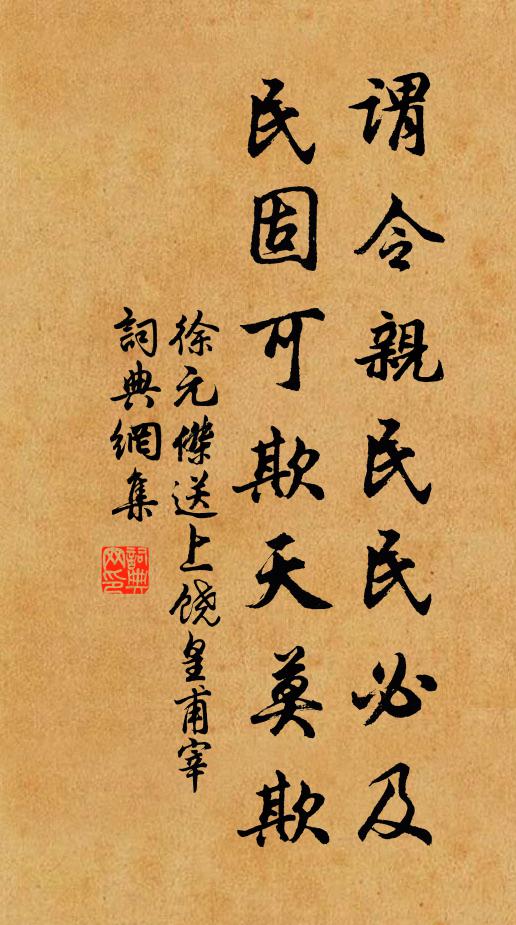 謂令親民民必及
民固可欺天莫欺
徐元傑送上饒皇甫宰
詞典網集
詞典網印